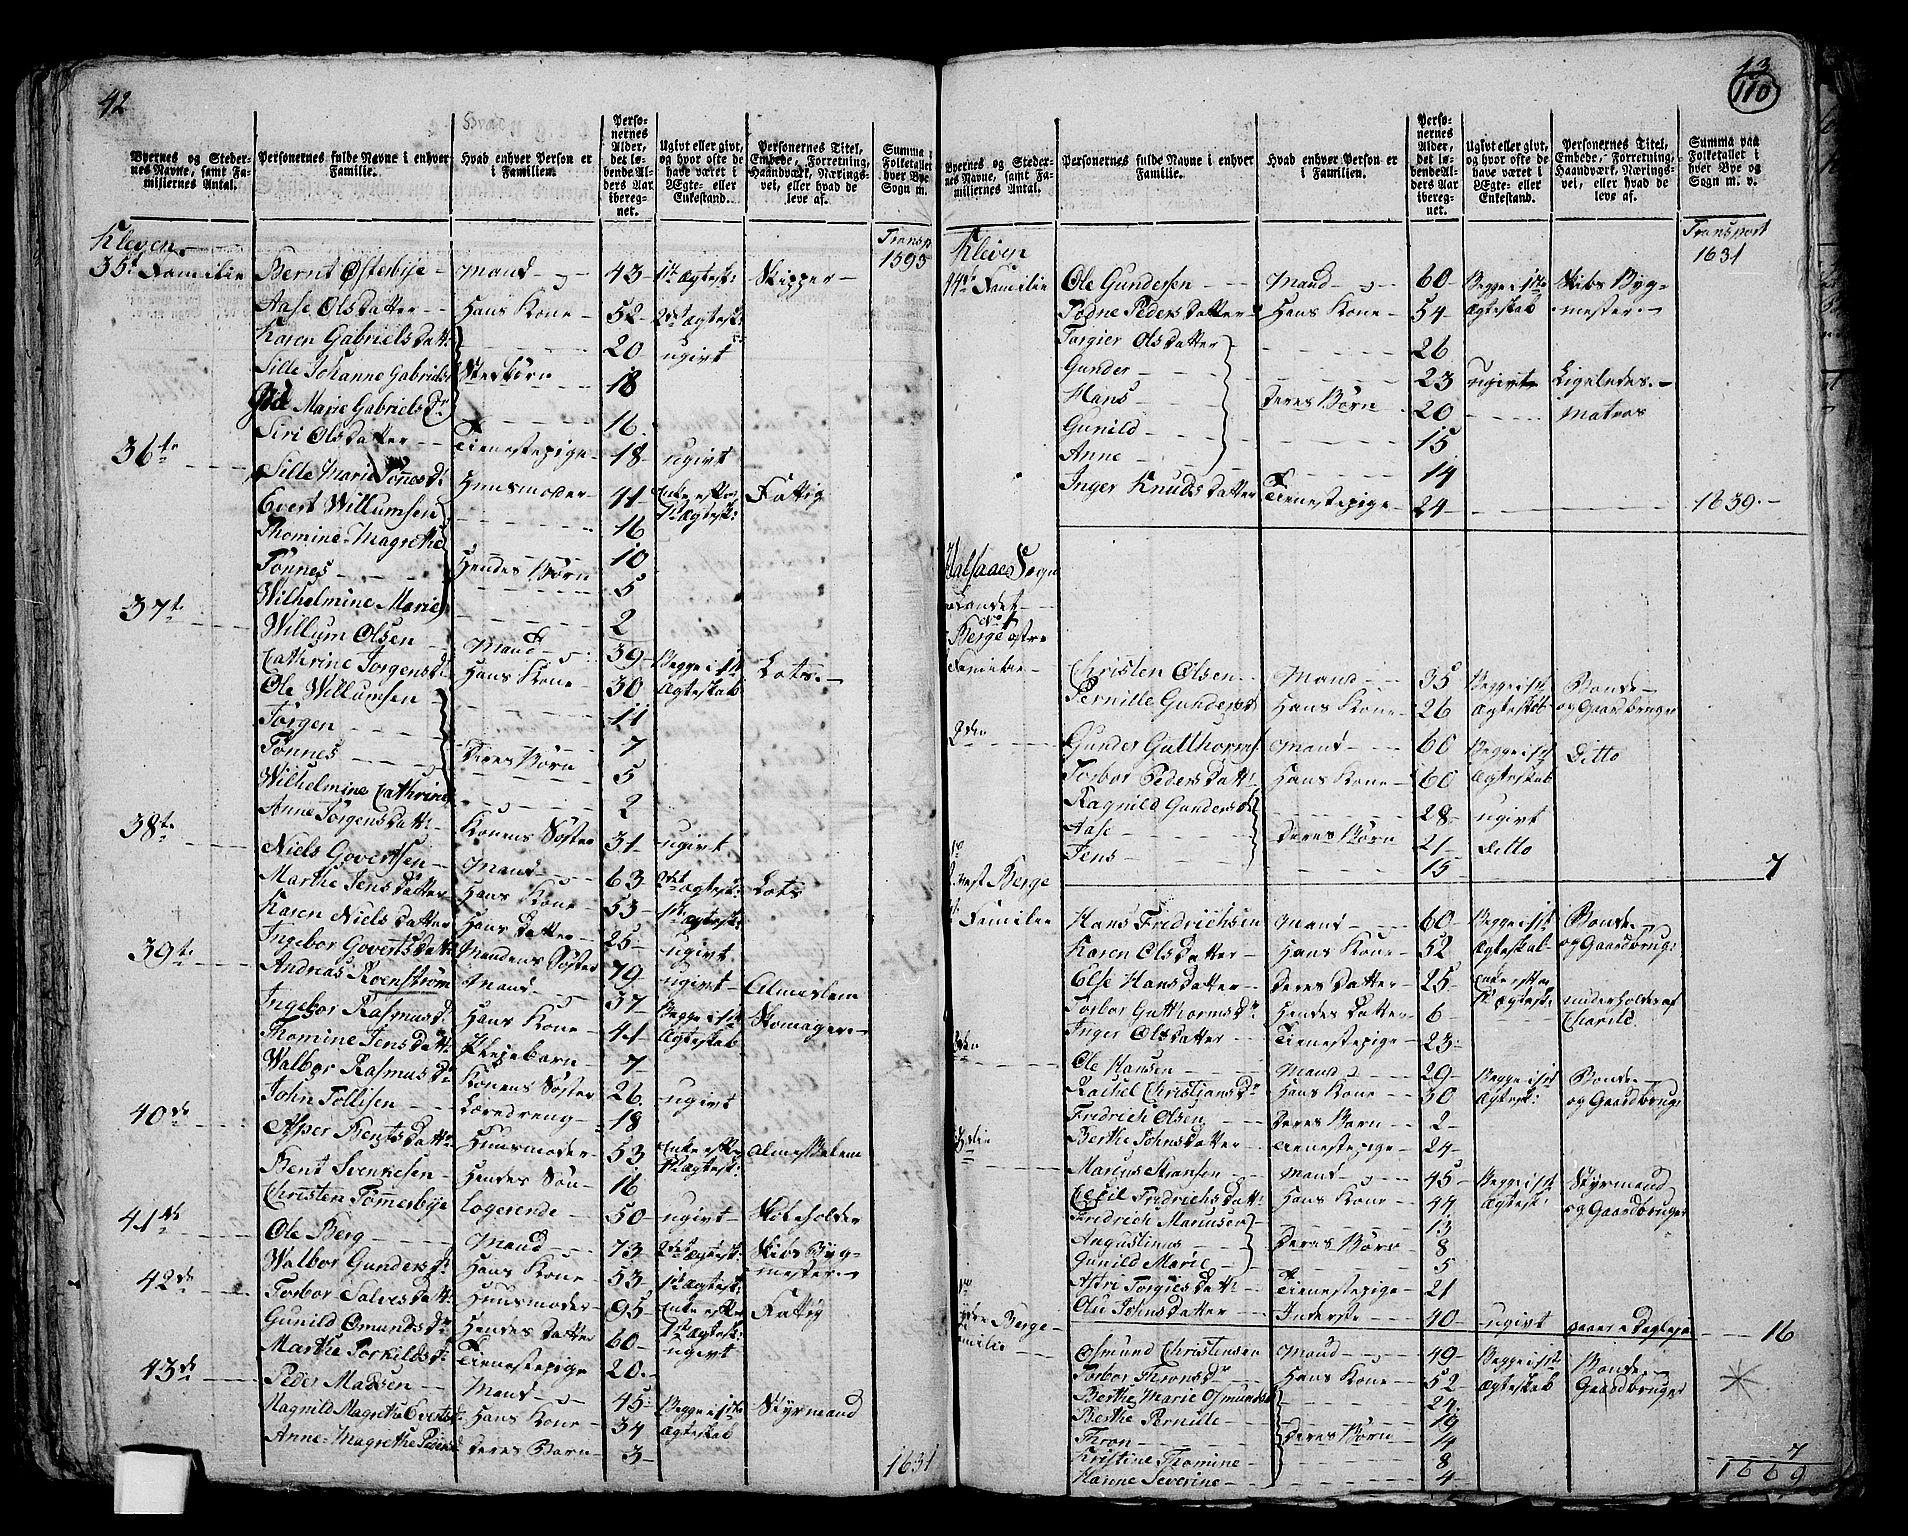 42
Byernes og Stedernes Navne, samt Familiernes Antal.
Personernes fulde Navne i enhver Familie.
Hvad enhver Person er i Familien.
Personernes Alder, det løbende Alders Aar iberegnet.
Ugivt eller givt, og hvor ofte de have været i Ægte- eller Enkestand.
Personernes Titel, Embede, Forretning, Haandværk, Næringsvei, eller hvad de leve af.
Summa paa Folketallet i hver Bye og Sogn m. v.
Kleven
Transp 1595
35te Familie Bernt Østerbye Mand 43 1ste Ægtesk: Skipper
Aase Olsdatter Hans Kone 52 2det Ægtesk:
Karen Gabrielsdatt: 20 ugivt
Sille Johanne Gabrielsd Stedbørn 18
Marie Gabrielsdr 16
Siri Olsdatter Tienestepige 18 ugivt
36te Sille Marie Tønesdr Huusmoder 41 Enke efter 1te Ægtesk: Fattig
Evert Willumsen 16
Thomine Magrethe 10
Tønnes Hendes Børn 5
Wilhelmine Marie 2
37te Willum Olsen Mand 39 Begge i 1te Ægteskab Lots
Cathrine Jørgensdr Hans Kone 30
Ole Willumsen 11
Jørgen 7
Tønnes Deres Børn 5
Wilhelmine Cathrine 2
Anne Jørgensdatt: Konens Søster 31 ugivt
38te Niels Govertsen Mand 63 2det Ægtesk: Lots
Marthe Jensdatter Hans Kone 53 1ste Ægtesk:
Karen Nielsdatter Hans Datter 25 ugivt
Ingebor Govertsdatt Mandens Søster 79 ugivt Almeslem
39te Andreas Roenstrøm Mand 37 Begge i 1ste Ægteskab Skomager
Ingebor Rasmusd: Hans Kone 41
Thomine Jensdatt: Pleiebarn 7
Walbor Rasmusdr Konens Søster 26 ugivt
John Tollisen Læredreng 18
40de Asper Bentsdatt: Huusmoder 53 Enke efter 1te Ægtesk: Almeslem
Bent Svenkesen Hendes Søn 16
Christen Tommerbye logerende 50 ugivt Skoleholder
41de Ole Berg Mand 73 2det Ægtesk: Skibs Bygmester
Walbor Gundersdr Hans Kone 53 1te Ægtesk:
42de Torbor Salvesdatt: Huusmoder 95 Enke efter 1ste Ægtesk: Fattig
Gunild Osmundsdr Hendes Datter 60 ugivt
Marthe Torkildsdr Tienestepige 20
43de Peder Madsen Mand 45 Begge i 1ste Ægteskab Styrmand
Ragnild Magrethe Evertsd Hans Kone 34
Anne Magrethe Pedersd Deres Barn 3
1631
43
110
Byernes og Stedernes Navne, samt Familiernes Antal.
Personernes fulde Navne i enhver Familie.
Hvad enhver Person er i Familien.
Personernes Alder, det løbende Alders Aar iberegnet.
Ugivt eller givt, og hvor ofte de have været i Ægte- eller Enkestand.
Personernes Titel, Embede, Forretning, Haandværk, Næringsvei, eller hvad de leve af.
Summa paa Folketallet i hver Bye og Sogn m. v.
Kleven
Transport 1631
44de Familie Ole Gundersen Mand 60 Begge i 1ste Ægteskab Skibs Bygmester
Togne Pedersdatter Hans Kone 54
Torgier Olsdatter 26
Gunder 23 ugivt Ligeledes
Hans Deres Børn 20 Matros
Gunild 15
Anne 14
Inger Knudsdatter Tienestepige 24 1639
Halsaae Sogn
Landet
No 1
Berge østre
Familie Christen Olsen Mand 35 Begge i 1ste Ægteskab Bonde og Gaardbruger
Pernille Gundersd Hans Kone 26
2den Gunder Gutthorms Mand 60 Begge i 1st Ægteskab Ditto
Torbor Pedersdatt: Hans Kone 60
Ragnild Gundersd 28 ugivt
Aase Deres Børn 21 Ditto
Jens 15
7
vest Berge
Familie Hans Fredrichsen Mand 60 Begge i 1st Ægteskab Bonde og Gaardbrug:
Karen Olsdatter Hans Kone 52
Else Hansdatter Deres Datter 25 Enke efter 1te Ægtesk: underholdes af
Torbor Gutthormsdr Hendes Datter 6
Inger Olsdatter Tienestepige 23
2den Ole Hansen Mand 29 Begge i 1st Ægtesk: Bonde og Gaardbrug:
Rachel Christiansdr Hans Kone 30
Fredrich Olsen Deres Barn 2
Berthe Johnsdatter Tienestepige 24
3die Marcus Stiansen Mand 45 Begge i 1st Ægtesk: Styrmand og Gaardbruger
Cecil Fredrichsdatt: Hans Kone 44
Fredrich Marcusen 13
Augustinus Deres Børn 8
Gunild Marie 5
Astri Torgiesdatt: Tienestepige 21
Olu Johnsdatter Inderste 40 ugivt 16
Berge
Familie Osmund Christensen Mand 49 Begge i 1ste Ægteskab Bonde Gaardbruger
Torbor Thronsdr Hans Kone 52
Berthe Marie Osmundsd 24
Berthe Pernille 19
Thron Deres Børn 14
Kristine Thomine 8
Hanne Severine 4
7
1669